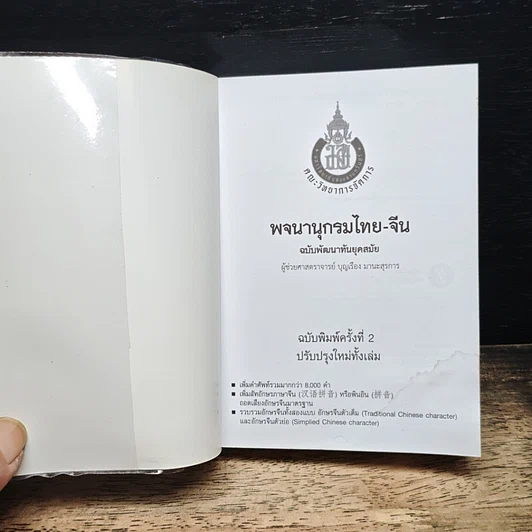 คณะวิทยาการจัดการ
พจนานุกรมไทย-จีน
ฉบับพัฒนาทันยุคสมัย
ผู้ช่วยศาสตราจารย์ บุญเรือง มานะสุรการ
ฉบับพิมพ์ครั้งที่ 2
ปรับปรุงใหม่ทั้งเล่ม
■ เพิ่มคำศัพท์รวมมากกว่า 8,000 คำ
■ เพิ่มสัทอักษรภาษาจีน (汉语拼音) หรือพินอิน (拼音)
ถอดเสียงอักษรจีนมาตรฐาน
■ รวบรวมอักษรจีนทั้งสองแบบ อักษรจีนตัวเต็ม (Traditional Chinese character)
และอักษรจีนตัวย่อ (Simplied Chinese character)